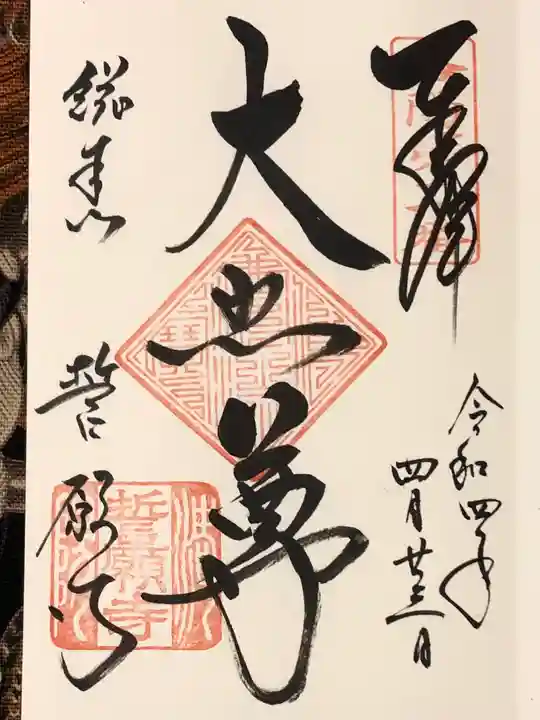 奉拝
令和四年
四月廿三日
大悲尊
総本山
誓願寺
誓願寺